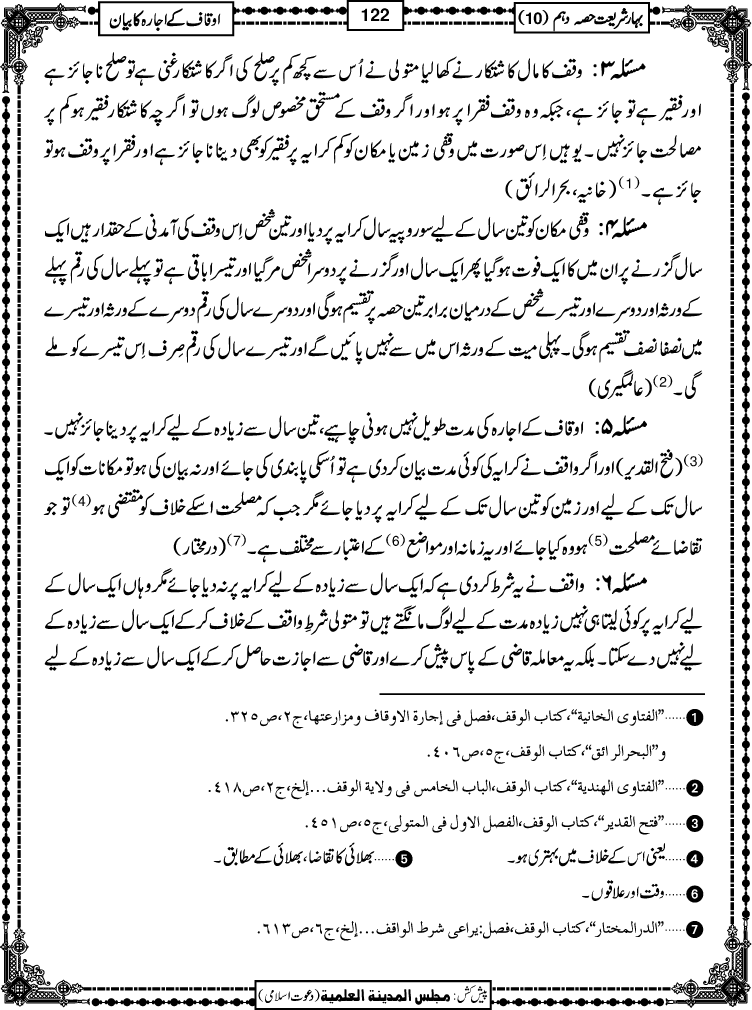 بہارِ شریعت حصہ دہم (10)
122
اوقاف کے اجارہ کا بیان
مسئلہ ۳: وقف کا مال کاشتکار نے کھا لیا متولی نے اُس سے کچھ کم پر صلح کی اگر کاشتکار غنی ہے تو صلح ناجائز ہے
اور فقیر ہے تو جائز ہے، جبکہ وہ وقف فقرا پر ہو اور اگر وقف کے مستحق مخصوص لوگ ہوں تو اگرچہ کاشتکار فقیر ہو کم پر
مصالحت جائز نہیں۔ یوہیں اِس صورت میں وقفی زمین یا مکان کو کم کرایہ پر فقیر کو بھی دینا ناجائز ہے اور فقرا پر وقف ہو تو
جائز ہے۔(1) (خانیہ، بحرالرائق)
مسئلہ ۴: وقفی مکان کو تین سال کے لیے سو روپیہ سال کرایہ پر دیا اور تین شخص اِس وقف کی آمدنی کے حقدار ہیں ایک
سال گزرنے پر ان میں کا ایک فوت ہوگیا پھر ایک سال اور گزرنے پر دوسرا شخص مرگیا اور تیسرا باقی ہے تو پہلے سال کی رقم پہلے
کے ورثہ اور دوسرے اور تیسرے شخص کے درمیان برابر تین حصہ پر تقسیم ہوگی اور دوسرے سال کی رقم دوسرے کے ورثہ اور تیسرے
میں نصفا نصف تقسیم ہوگی۔ پہلی میت کے ورثہ اس میں سے نہیں پائیں گے اور تیسرے سال کی رقم صرف اِس تیسرے کو ملے
گی۔(2) (عالمگیری)
مسئلہ ۵: اوقاف کے اجارہ کی مدت طویل نہیں ہونی چاہیے، تین سال سے زیادہ کے لیے کرایہ پر دینا جائز نہیں۔
(3) (فتح القدیر) اور اگر واقف نے کرایہ کی کوئی مدت بیان کردی ہے تو اُسکی پابندی کی جائے اور نہ بیان کی ہو تو مکانات کو ایک
سال تک کے لیے اور زمین کو تین سال تک کے لیے کرایہ پر دیا جائے مگر جب کہ مصلحت اسکے خلاف کو مقتضی ہو(4) تو جو
تقاضائے مصلحت(5) ہو وہ کیا جائے اور یہ زمانہ اور مواضع(6) کے اعتبار سے مختلف ہے۔(7) (درمختار)
مسئلہ ۶: واقف نے یہ شرط کردی ہے کہ ایک سال سے زیادہ کے لیے کرایہ پر نہ دیا جائے مگر وہاں ایک سال کے
لیے کرایہ پر کوئی لیتا ہی نہیں زیادہ مدت کے لیے لوگ مانگتے ہیں تو متولی شرطِ واقف کے خلاف کرکے ایک سال سے زیادہ کے
لیے نہیں دے سکتا۔ بلکہ یہ معاملہ قاضی کے پاس پیش کرے اور قاضی سے اجازت حاصل کرکے ایک سال سے زیادہ کے لیے
1......"الفتاوى الخانية"، كتاب الوقف، فصل فى إجارة الاوقاف ومزارعتها، ج۲، ص۳۲۵.
و"البحرالرائق"، كتاب الوقف، ج۵، ص۴۰۶.
2......"الفتاوى الهندية"، كتاب الوقف، الباب الخامس فى ولاية الوقف...إلخ، ج۲، ص۴۱۸.
3......"فتح القدير"، كتاب الوقف، الفصل الاول فى المتولى، ج۵، ص۴۵۱.
4......یعنی اس کے خلاف میں بہتری ہو۔ 5......بھلائی کا تقاضا، بھلائی کے مطابق۔
6......وقت اور علاقوں۔
7......"الدرالمختار"، كتاب الوقف، فصل: يراعى شرط الواقف...إلخ، ج۶، ص۶۱۳.
پیش کش: مجلس المدينة العلمية (دعوت اسلامی)